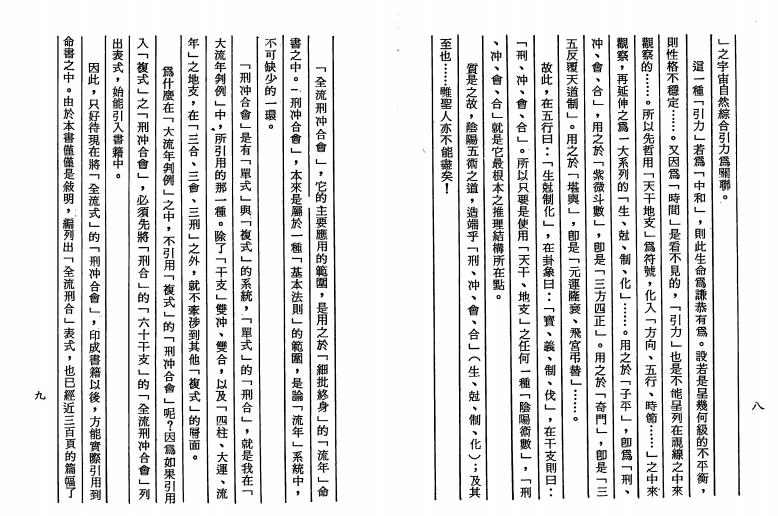 」之宇宙自然綜合引力爲關聯。
這一種「引力」若爲「中和」，則此生命爲謙恭有爲。設若是呈幾何級的不平衡，
則性格不穩定……。又因爲「時間」是看不見的，「引力」也是不能呈列在視線之中來
觀察的……。所以先哲用「天干地支」爲符號，化入「方向、五行、時節……」之中來
觀察，再延伸之爲一大系列的「生、尅、制、化」……。用之於「子平」，卽爲「刑、
冲、會、合」，用之於「紫微斗數」，卽是「三方四正」。用之於「奇門」，卽是「三
五反覆天道制」。用之於「堪輿」，卽是「元運隆衰、飛宮弔替」……。
故此，在五行曰：「生尅制化」，在卦象曰：「寶、義、制、伐」，在干支則曰：
「刑、冲、會、合」。所以只要是使用「天干、地支」之任何一種「陰陽術數」，「刑
、冲、會、合」就是它最根本之推理結構所在點。
質是之故，陰陽五術之道，造端乎「刑、冲、會、合」（生、尅、制、化）；及其
至也……雖聖人亦不能盡矣！
八
「全流刑冲合會」，它的主要應用的範圍，是用之於「細批終身」的「流年」命
書之中。「刑冲合會」，本來是屬於一種「基本法則」的範圍，是論「流年」系統中，
不可缺少的一環。
「刑冲合會」是有「單式」與「複式」的系統，「單式」的「刑合」，就是我在「
大流年判例」中，所引用的那一種。除了「干支」雙冲、雙合，以及「四柱、大運、流
年」之地支，在「三合、三會、三刑」之外，就不牽涉到其他「複式」的層面。
爲什麼在「大流年判例」之中，不引用「複式」的「刑冲合會」呢？因爲如果引用
入「複式」之「刑冲合會」，必須先將「刑合」的「六十干支」的「全流刑冲合會」列
出表式，始能引入書籍中。
因此，只好待現在將「全流式」的「刑冲合會」，印成書籍以後，方能實際引用到
命書之中。由於本書僅僅是敘明，編列出「全流刑合」表式，也已經近三百頁的篇幅了
九